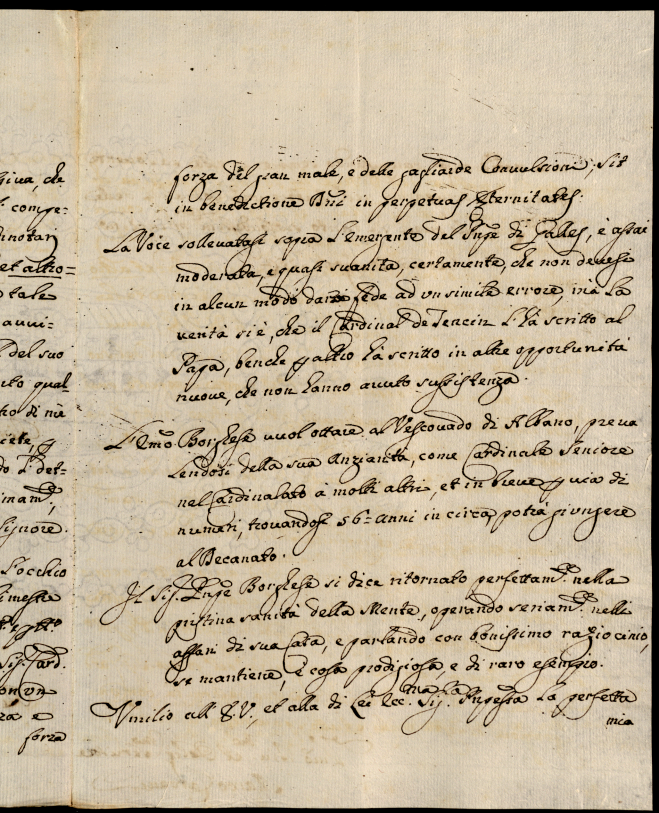 giva, che
compe=
notarj
et altro=
tale
auui=
del suo
uto qual
tio di nà
ciete, p
do l'det=
inam.te,
Signore.
l'occhio
imestre
Sig.r Card.
con vn
za e
forza
forza del gran male, e delle gagliarde Conuulsioni; Sit
in benedictione Dni in perpetuas Æternitates.
La Voce solleuatasi sopra l'emergente del Pnpe di Galles, è assai
moderata, e quasi suanita, certamente, che non deuesi
in alcun modo darsi fede ad vn simile errore, ma la
verità si è, che il Cardinal de Tencin l'hà scritto al
Papa, benche p altro hà scritto in altre opportunità
nuoue, che non hanno auuto sussistenza.
L'Emo Borghese vuol ottare al Vescouado di Albano, preua
lendosi della sua Anzianità, come Cardinale Seniore
nel Cardinalato à molti altri, et in breue p uia di
numeri, trouandosi 56= anni in circa, potrà giungere
al Decanato.
Il Sig.r Pnpe Borghese si dice ritornato perfettam.te nella
pristina sanità della Mente, operando seriam.te nelli
affari di sua Casa, e parlando con bonissimo raziocinio,
se mantiene, è cosa prodigiosa, e di raro esempio.
Vmilio all' E.V., et alla di Lei Ecc.ma Sig.ra Pnpessa la perfetta
mia